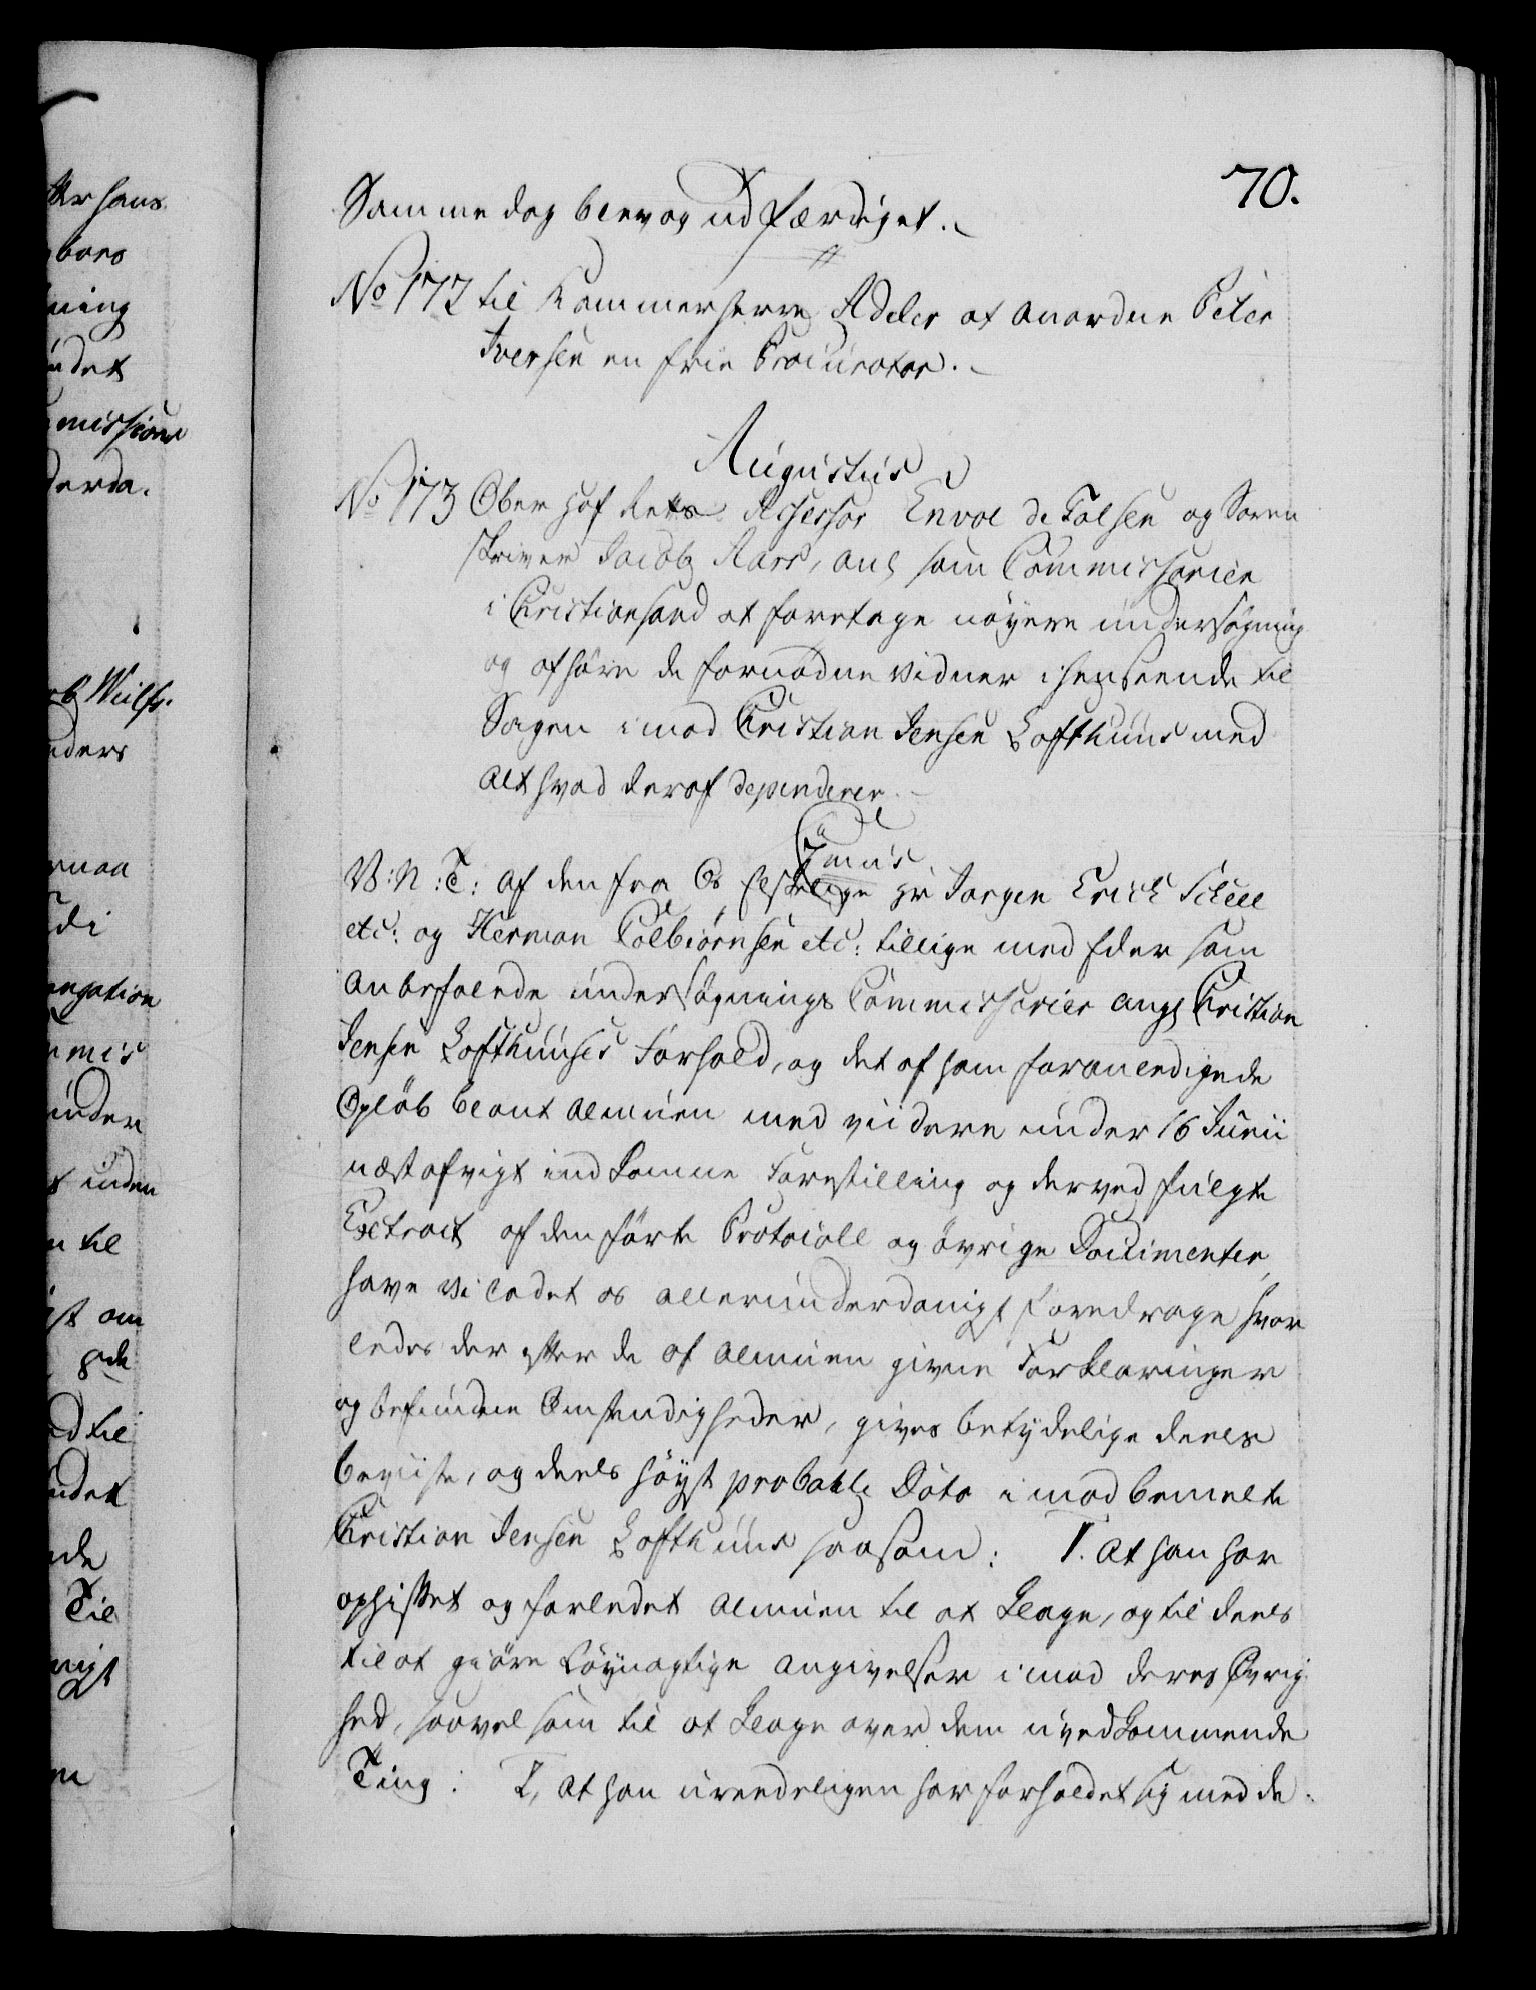 70.
Samme dag blev og udfærdiget.
No 172 til Kammerherre Adeler at anordne Peter
Iversen en frie Procurator.
Augustus
No 173 Ober Hof Retts Assessor Envol de Falsen og Soren
skriver Jacob Aars, anl som Commissarier
i Christiansand at foretage nöyere undersögning
og afhöre de fornödne vidner i henseende til
Sagen imod Christian Jensen Lofthuus med
alt hvad deraf dependerer.
7mus
V: N: T: Af den fra Os Elskelige Hr Jørgen Erich Scheel
etc: og Herman Colbiørnsen etc: tillige med Eder som
anbefalede undersögnings Commissarier angl Christian
Jensen Lofthuuses Forhold, og det af ham foranledigede
Opløb blant almuen med viidere under 16 Junii
næstafvigt indkomne Forestilling og derved fulgte
Extract af den førte Protocoll og övrige Documenter,
have vi ladet os allerunderdanigst foredrage hvor
ledes der efter de af almuen givne Forklaringer
og befundne Omstændigheder, gives betydelige deels
beviiste, og deels höyst probable Data imod bemelte
Christian Jensen Lofthuus saasom: 1. At han har
ophisset og forledet almuen til at klage, og til deels
til at giöre löynagtige angivelser imod deres Øvrig
hed, saavel som til at klage over dem uvedkommende
Ting: 2, At han ureedeligen har forholdet sig med de